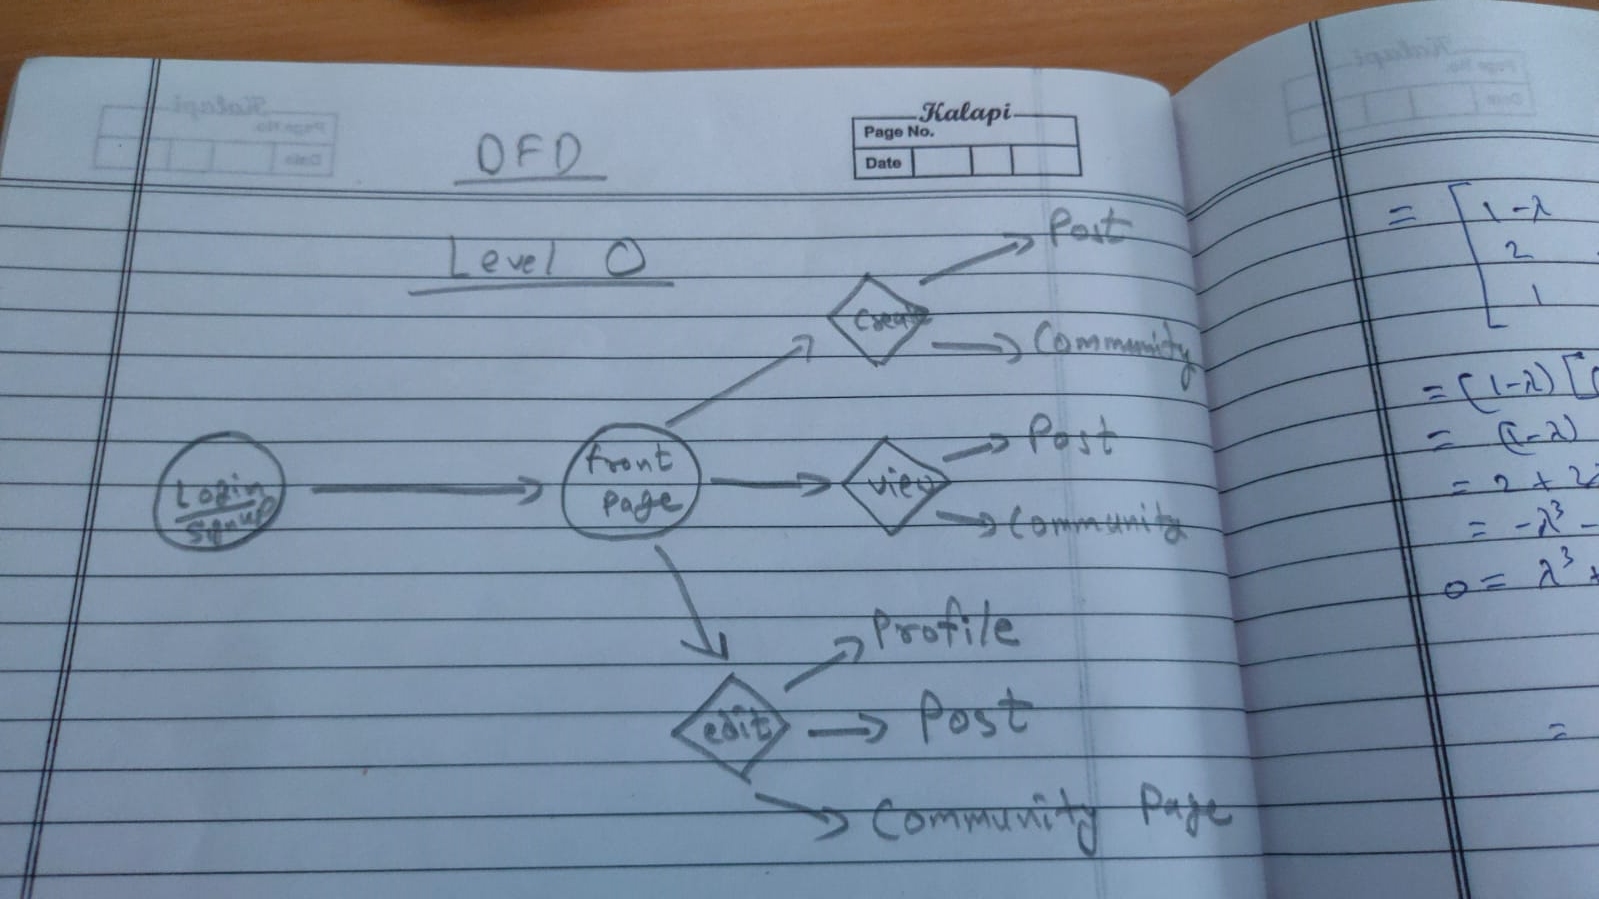 Kalapi
Page No.
Date
DFD
Level 0
Login
Signup
front
Page
Create
Post
Community
view
Post
Community
edit
Profile
Post
Community Page
= [ 1-λ
2
1
= (1-λ) [
= (1-λ)
= 2 + 2
= -λ³ -
0 = λ³ +
=